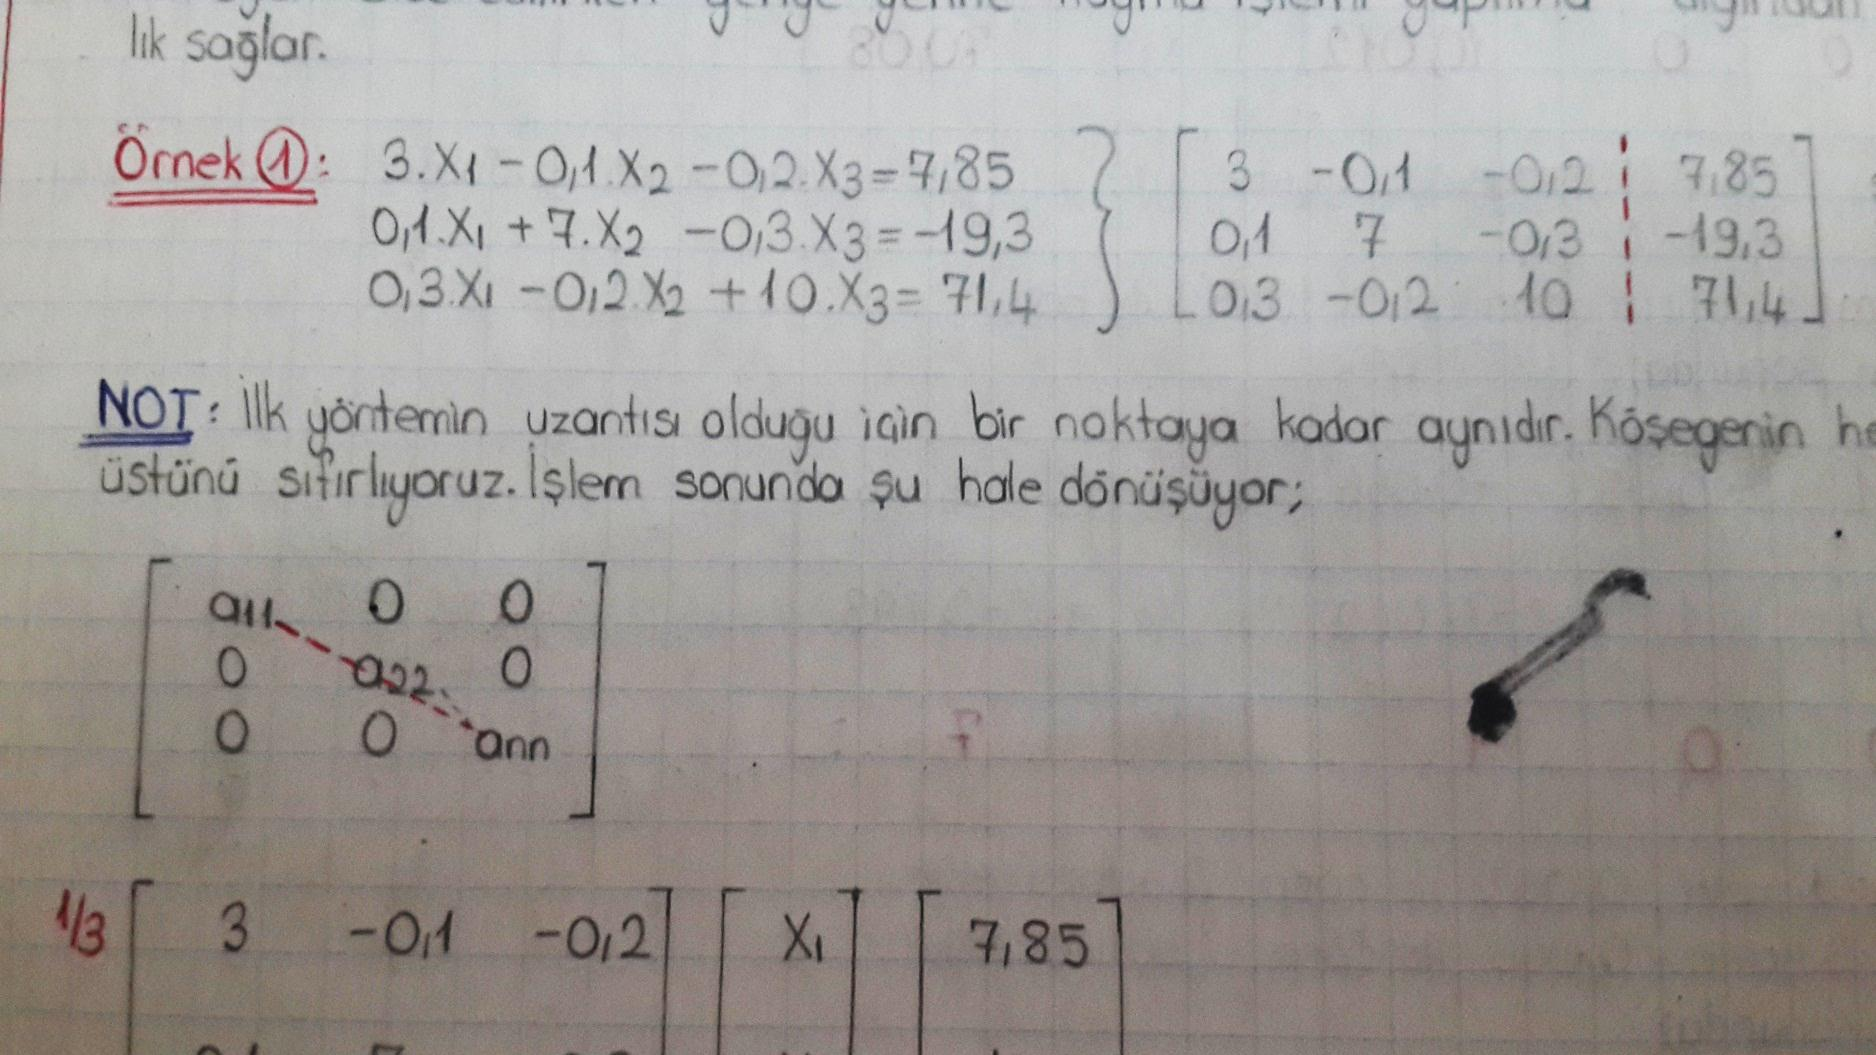 lık sağlar.
Örnek ①: 3.X₁ - 0,1.X₂ - 0,2.X₃ = 7,85 } [ 3 -0,1 -0,2 ¦ 7,85 ]
0,1.X₁ + 7.X₂ - 0,3.X₃ = -19,3 0,1 7 -0,3 ¦ -19,3
0,3.X₁ - 0,2.X₂ + 10.X₃ = 71,4 0,3 -0,2 10 ¦ 71,4
NOT: İlk yöntemin uzantısı olduğu için bir noktaya kadar aynıdır. Köşegenin
üstünü sıfırlıyoruz. İşlem sonunda şu hale dönüşüyor;
a11 0 0
0 a22 0
0 0 ann
1/3 [ 3 -0,1 -0,2 ] [ X₁ ] [ 7,85 ]